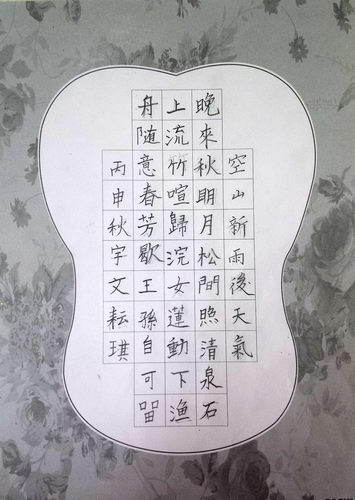 空山新雨後天氣
晚來秋明月松間照清泉石
上流竹喧歸浣女蓮動下漁
舟随意春芳歇王孫自可留
丙申秋宇文耘琪